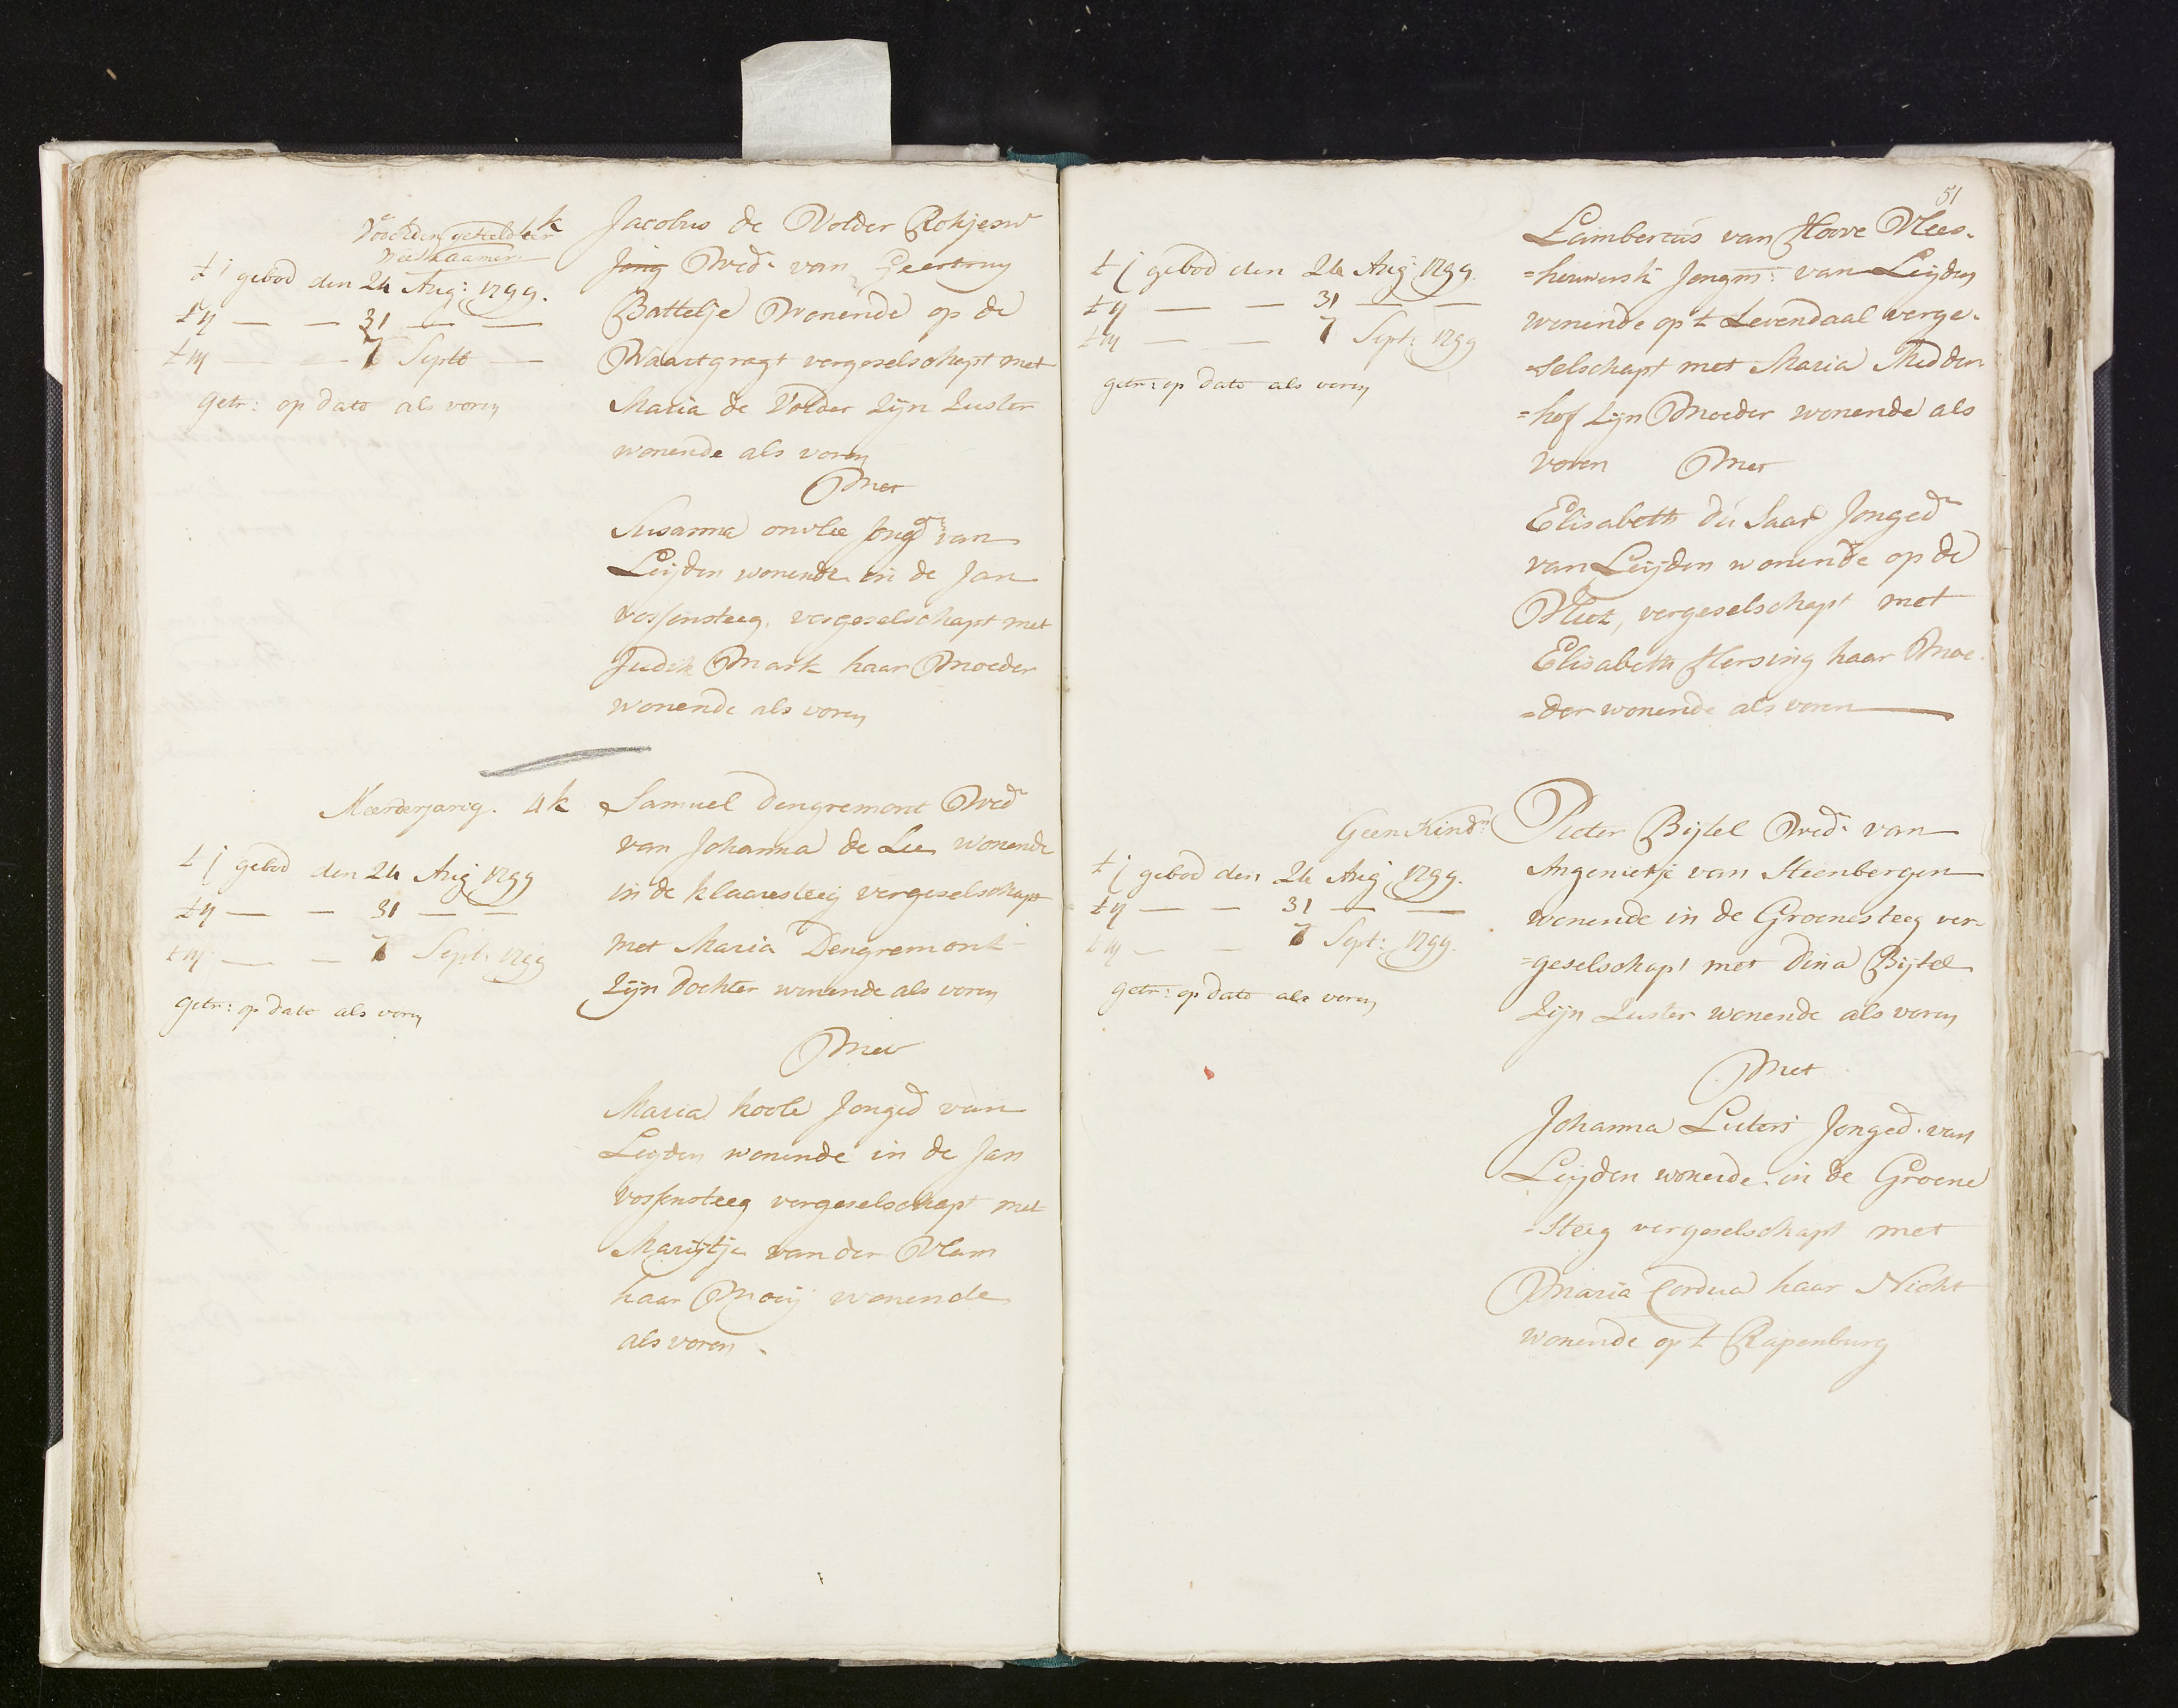 k
Weeskaamer
t j gebod den 24 Aug: 1799.
t ij — — 31 — —
t iij — — 7 Septb —
getr: op dato als voren
Jacobus de Volder
Jong Wed:r van Geertruy
Battelje Wonende op de
Waartgragt vergeselschapt met
Maria de Volder Zijn Zuster
wonende als voren
Met
Susanna onvlee Jongd van
Leijden wonende in de Jan
vossensteeg, vergeselschapt met
Judik Mark haar Moeder
wonende als voren
Meerderjarig. 4 k
t j gebod den 24 Aug 1799
t ij — — 31 — —
t iij — — 7 Sept: 1799
getr: op dato als voren
Samuel Dengremont Wed:r
van Johanna de Lee wonende
in de klaaresteeg vergeselschapt
met Maria Dengremont
Zijn Dochter wonende als voren
Met
Maria koole Jonged van
Leyden wonende in de Jan
vossensteeg vergeselschapt met
Marijtje van der Vlam
haar Moeij wonende
als voren.
51
t j gebod den 24 Aug: 1799.
t ij — — 31 — —
t iij — — 7 Sept: 1799
getr: op dato als voren
Lambertus van Hove Vlees-
=houwersk Jongm: van Leijden
wonende op 't Levendaal verge-
=selschapt met Maria Medden-
=hof Zijn Moeder wonende als
voren Met
Elisabeth du Saar Jonged
van Leijden wonende op de
Vliet, vergeselschapt met
Elisabeth Hersing haar Moe-
=der wonende als voren
Geen Kind:n
t j gebod den 24 Aug: 1799.
t ij — — 31 — —
t iij — — 7 Sept: 1799.
getr: op dato als voren
Pieter Bijtel Wed:r van
Angenietje van Steenbergen
wonende in de Groenesteeg ver-
=geselschapt met Dina Bijtel
Zijn Zuster wonende als voren
Met
Johanna Luters Jonged: van
Leijden wonende in de Groene
-steeg vergeselschapt met
Maria Cordua haar Nicht
wonende op 't Rapenburg